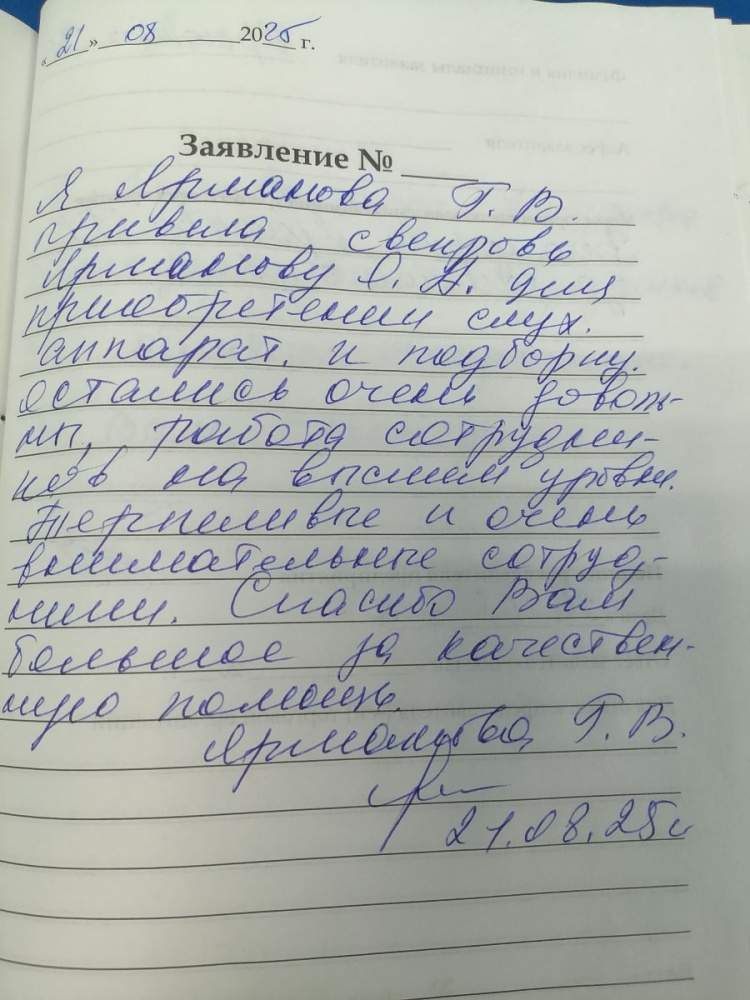 «21» 08 2025 г.
Заявление № ____
Я Ярманова Г. В.
привела свекровь
Ярманову О. Д. для
приобретении слух.
аппарат. и подборку.
остались очень доволь-
ны, работа сотрудни-
ков на высшем уровни.
Терпеливые и очень
внимательные сотруд-
ники. Спасибо Вам
большое за качествен-
ную помощь.
Ярманова Г. В.
21.08.25г